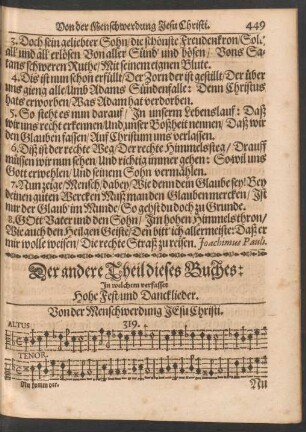 Von der Menschwerdung Jesu Christi. 449
3. Doch sein geliebter Sohn/ die schönste Freudenkron/ Sol
all und all erlösen Von aller Sünd und bösen/ Vons Sa-
tans schweren Ruthe/ Mit seinem eignen Blute.
4. Dis ist nun schon erfüllt/ Der Zorn der ist gestillt/ Der über
uns gieng alle/ Umb Adams Sündenfalle: Denn Christus
hats erworben/ Was Adam hat verdorben.
5. So steht es nun darauf/ In unserm Lebenslauf: Daß
wir uns recht erkennen/ Und unser Boßheit nennen/ Daß wir
den Glauben fassen/ Auf Christum uns verlassen.
6. Diß ist der rechte Weg/ Der rechte Himmelssteg/ Drauff
müssen wir nun sehen/ Und richtig immer gehen: So wil uns
Gott erwehlen/ Und seinem Sohn vermählen.
7. Nun zeige/ Mensch/ dabey/ Wie denn dein Glaube sey/ Bey
deinen guten Wercken Muß man den Glauben mercken/ Ist
nur der Glaub im Munde/ So gehst du doch zu Grunde.
8. GOtt Vater und dein Sohn/ Im hohen Himmelsthron/
Wie auch den Heilgen Geiste/ Den bitt ich allermeiste: Daß er
mir wolle weisen/ Die rechte Straß zu reisen. Joachimus Pauli.
Der andere Theil dieses Buches:
In welchem verfasset
Hohe Fest und Dancklieder.
Von der Menschwerdung JEsu Christi.
ALTUS. 319.
TENOR.
Nu